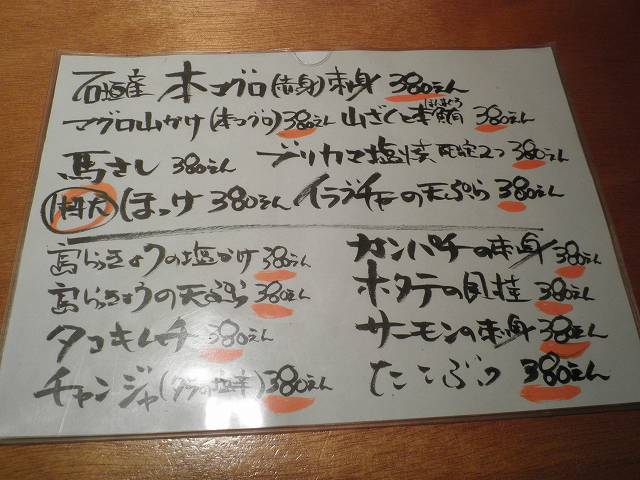 石垣産 本マグロ(赤身)刺身 380えん
マグロ山かけ(本マグロ)380えん 山ざくと本鮪 ほんまぐろ 380えん
馬さし 380えん ブリカマ塩焼 限定2つ 380えん
特大 ほっけ 380えん イラブチャーの天ぷら 380えん
島らっきょうの塩づけ 380えん
島らっきょうの天ぷら 380えん
タコキムチ 380えん
チャンジャ(タラの塩辛)380えん
カンパチの刺身 380えん
ホタテの貝柱 380えん
サーモンの刺身 380えん
たこぶつ 380えん